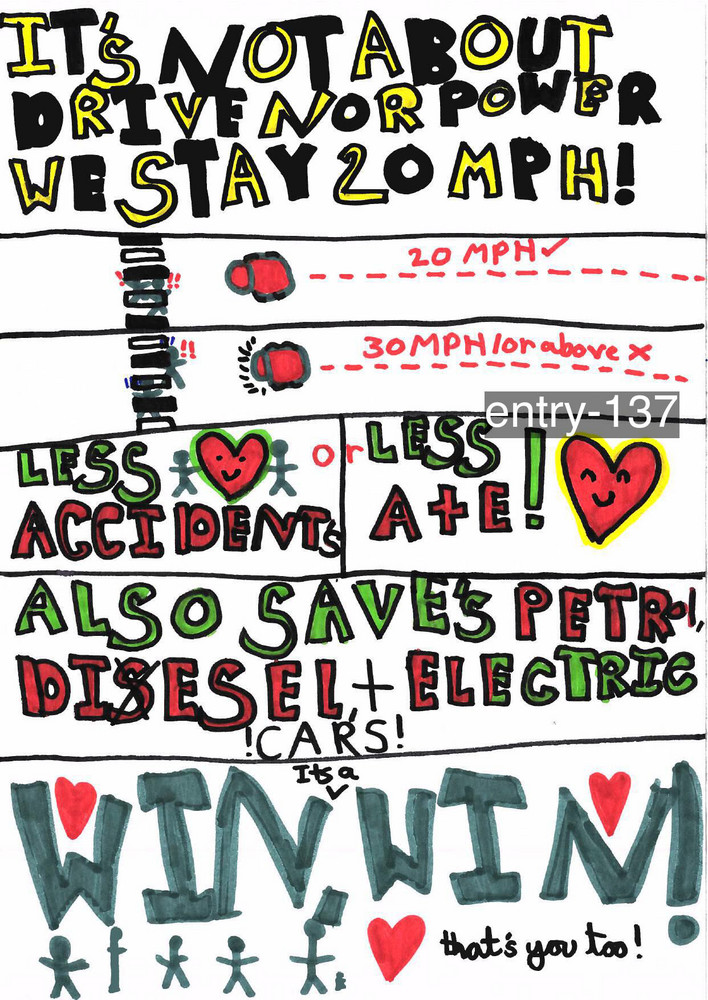 IT'S NOT ABOUT
DRIVE NOR POWER
WE STAY 20 MPH!
20 MPH✓
!! !!
30 MPH/or above x
!!
entry-137
LESS
ACCIDENTs
or
LESS
A+E!
ALSO SAVE'S PETROl,
DISESEL, + ELECTRIC
!CARS!
Its a
WIN, WIN!
that's you too!